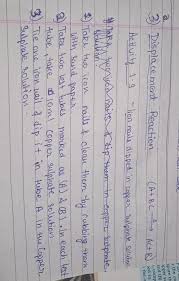 Displacement Reaction (A+BC → AC+B)
Activity 1.9 - Iron nails dipped in copper sulphate solution
Take two iron nails & clean them by rubbing them
with sand paper
Take two test tubes marked as (A) & (B). In each test
tube, take 10ml copper sulphate solution
Tie one iron nail & dip it in tube A in the copper
sulphate solution